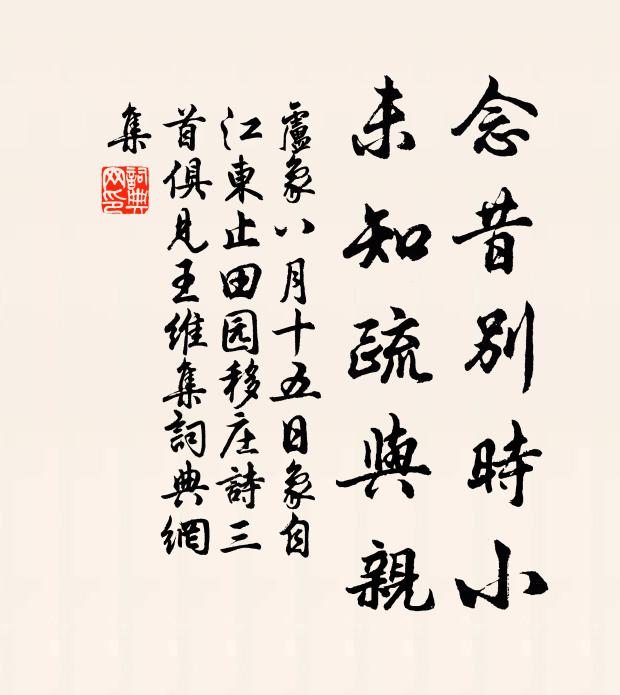 念昔別時小
未知疏與親
盧象八月十五日象自
江東止田园移庄詩三
首俱見王維集詞典網
集
詞典
网印